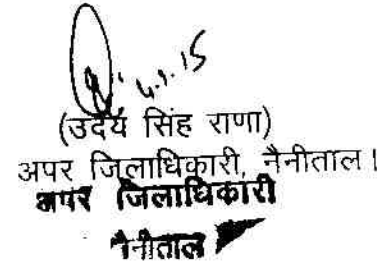 4.1.15
(उदय सिंह राणा)
अपर जिलाधिकारी, नैनीताल।
अपर जिलाधिकारी
नैनीताल